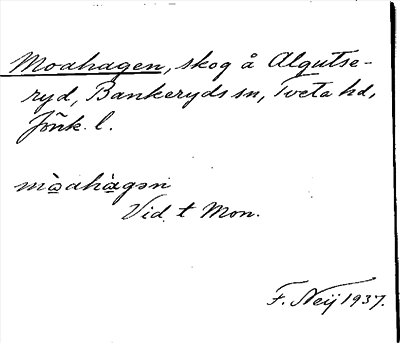 Moahagen, skog å Algutse-
ryd, Bankeryds sn, Tveta hd,
Jönk. l.
mòahàgən
Vid t Mon.
F. Neij 1937.